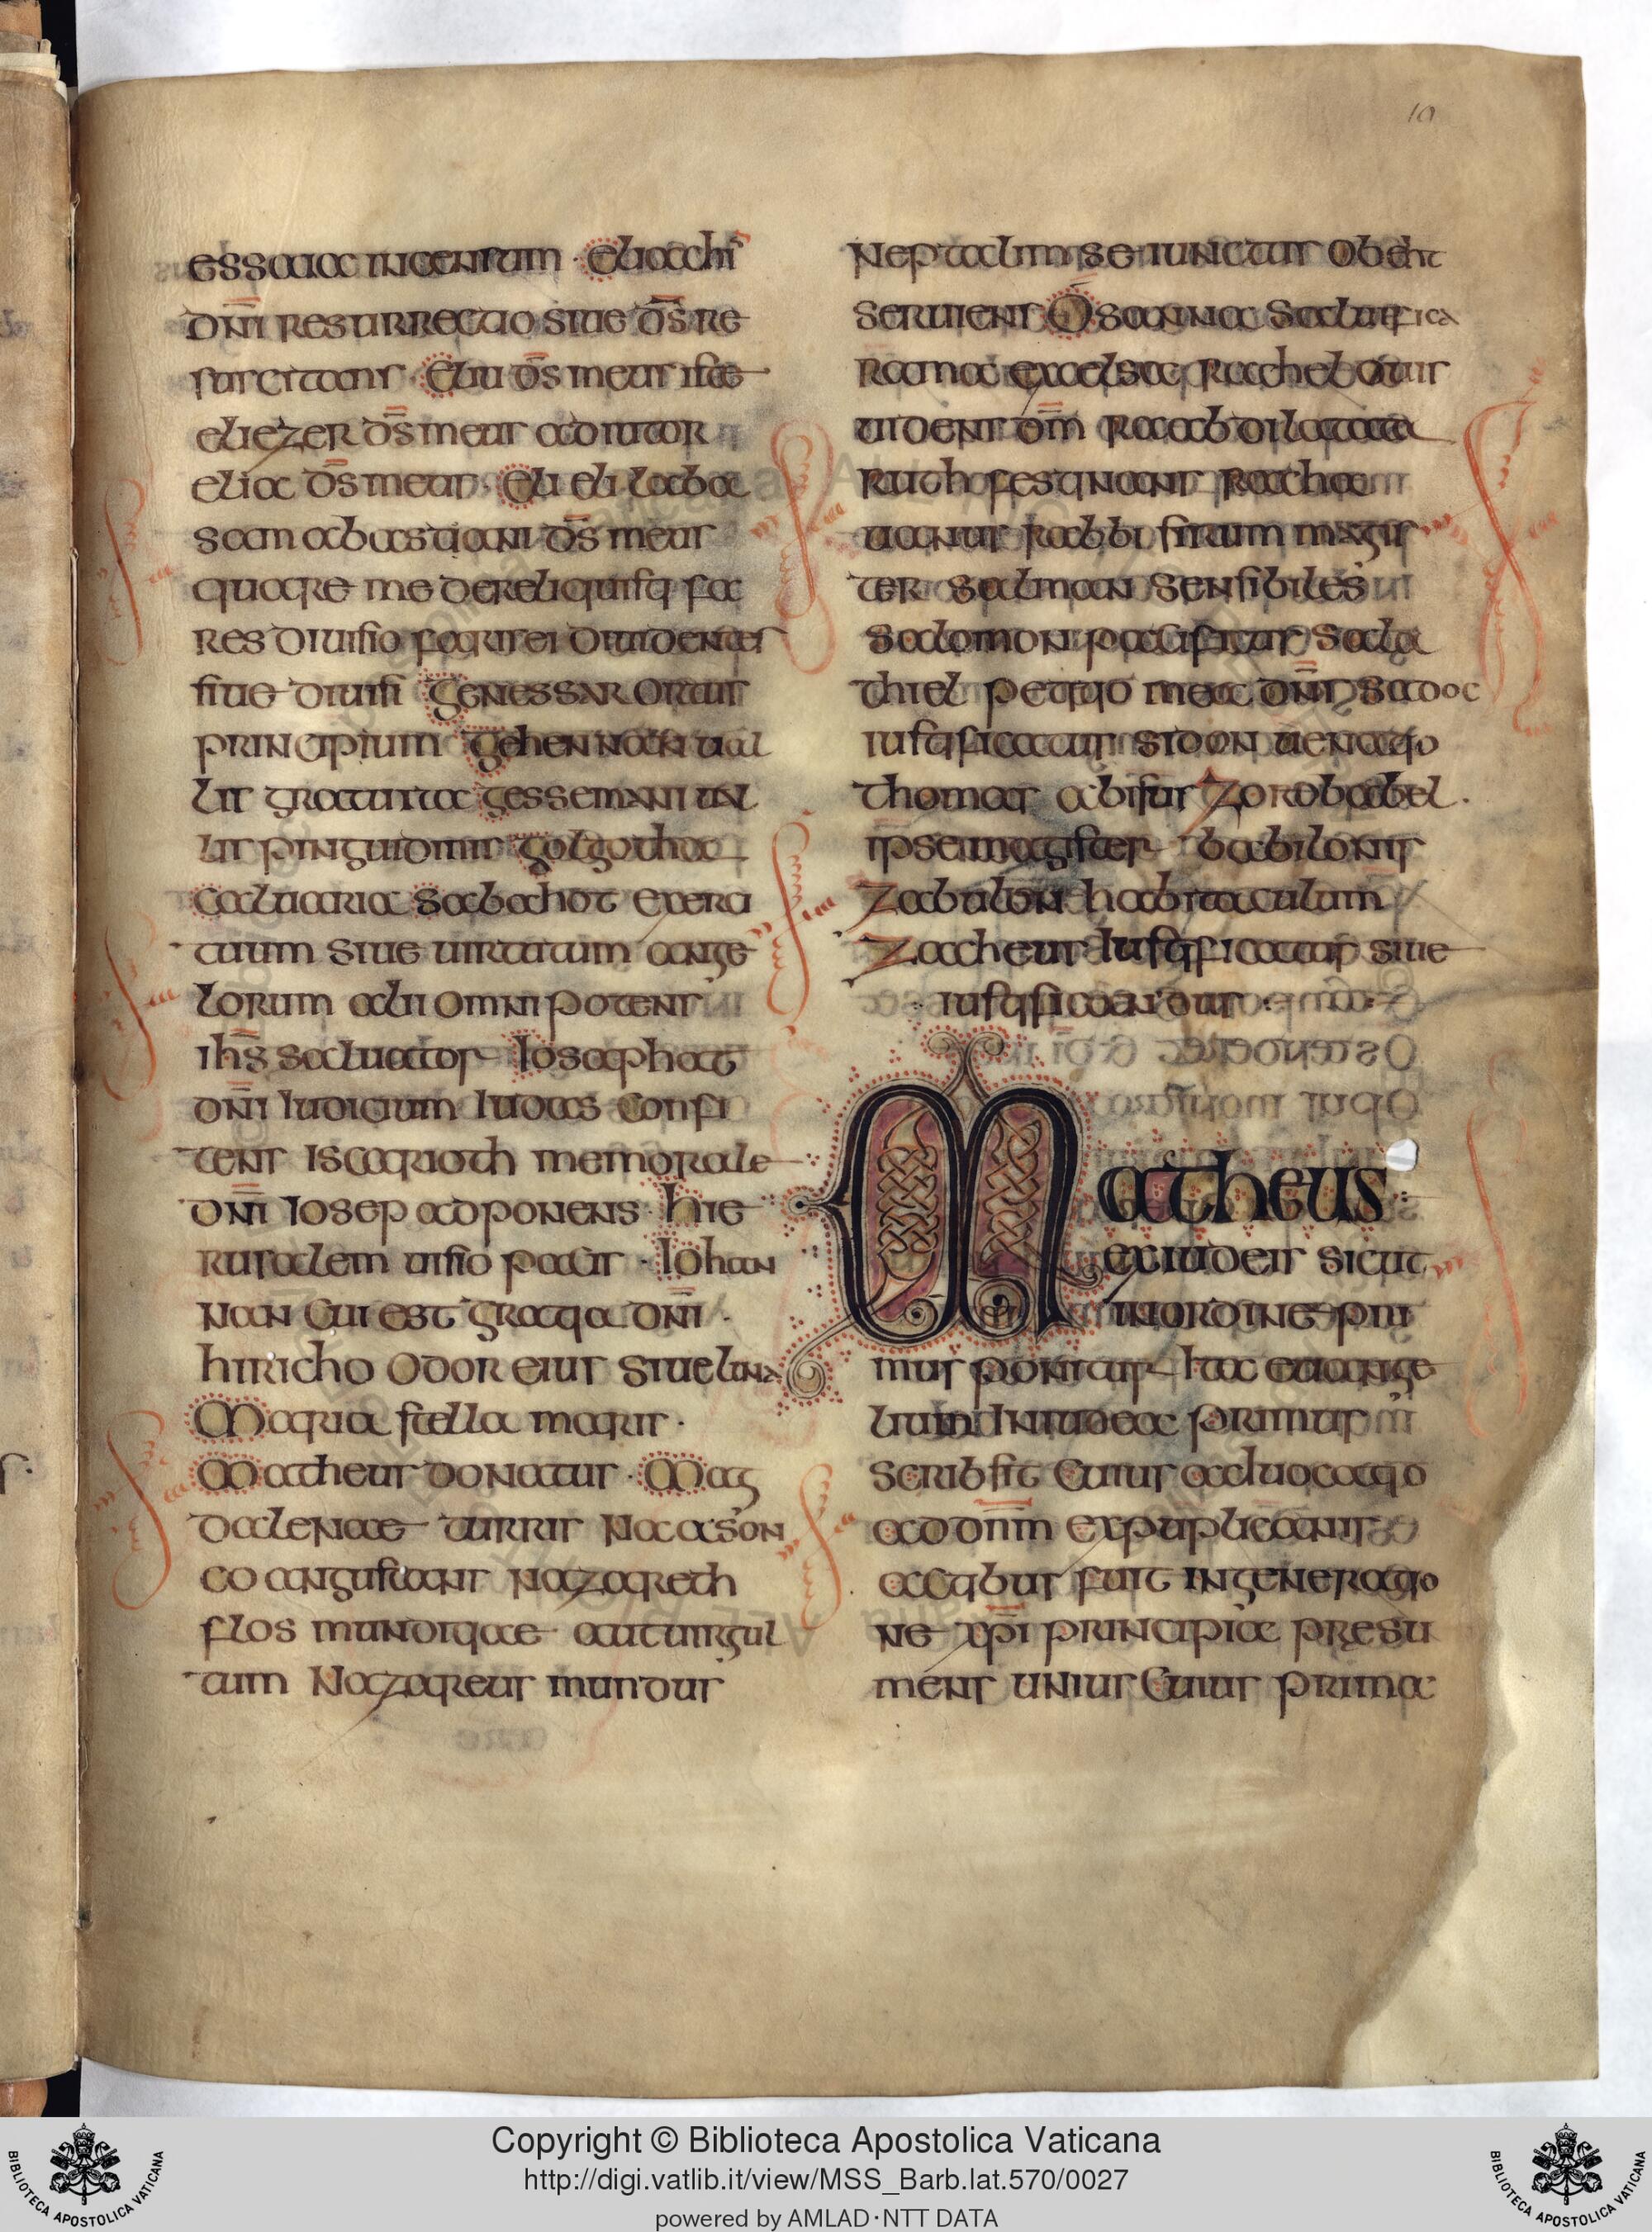 10
essaia incensum · eliachī
dn̄i resurrectio siue ds̄ re
suscitans · Eliu ds̄ meus iste
eliezer ds̄ meus adiutor
elia ds̄ meus · Eli eli laba
sam abastiani ds̄ meus
quare me dereliquisti fa
res diuisio farisei diuidentes
siue diuisi Genessar ortus
principium Gehennan ual
lis gratuita gessemani ual
lis pinguidinis golgotha
Caluaria Sabahot exerci
tuum siue uirtutum ange
lorum alii omnipotens
ihs̄ saluator Iosaphat
dn̄i Iudicium Iudas confi
tens Iscarioth memorale
dn̄i Iosep adponens · hie
rusalem uisio pacis · Iohan
nan Cui est gratia dn̄i ·
hiricho odor eius siue luna
Maria stella maris ·
Matheus donatus · Mag
dalenae turris Naason
co angustians Nazareth
flos munditiae aut uirgul
tum Nazareus mundus
Neptalim seiunctus Obeht
seruiens Osanna Saluifica
Rama excelsa Rachel ouis
uidens dm̄ Raab dilatata
Ruth festinans Racha
uanus Rabbi sirum magis
ter Salman sensibiles
Salomon pacificus Sala
thiel petitio mea dn̄i Sadoc
iustificatus sidon uenatio
thomas abisus Zorobabel.
ipse magister babilonis
Zabulon habitaculum
Zacheus Iustificatus siue
iustificandus ·
Matheus
ex iudeis sicut
in ordine pri
mus ponitur Ita euange
lium In iudea primus
scribsit Cuius aduocatio
ad dnm̄ ex puplicanis
actibus fuit in generatio
ne xp̄i principia presu
mens unius Cuius prima
Copyright © Biblioteca Apostolica Vaticana
http://digi.vatlib.it/view/MSS_Barb.lat.570/0027
powered by AMLAD·NTT DATA
BIBLIOTECA APOSTOLICA VATICANA
BIBLIOTECA APOSTOLICA VATICANA